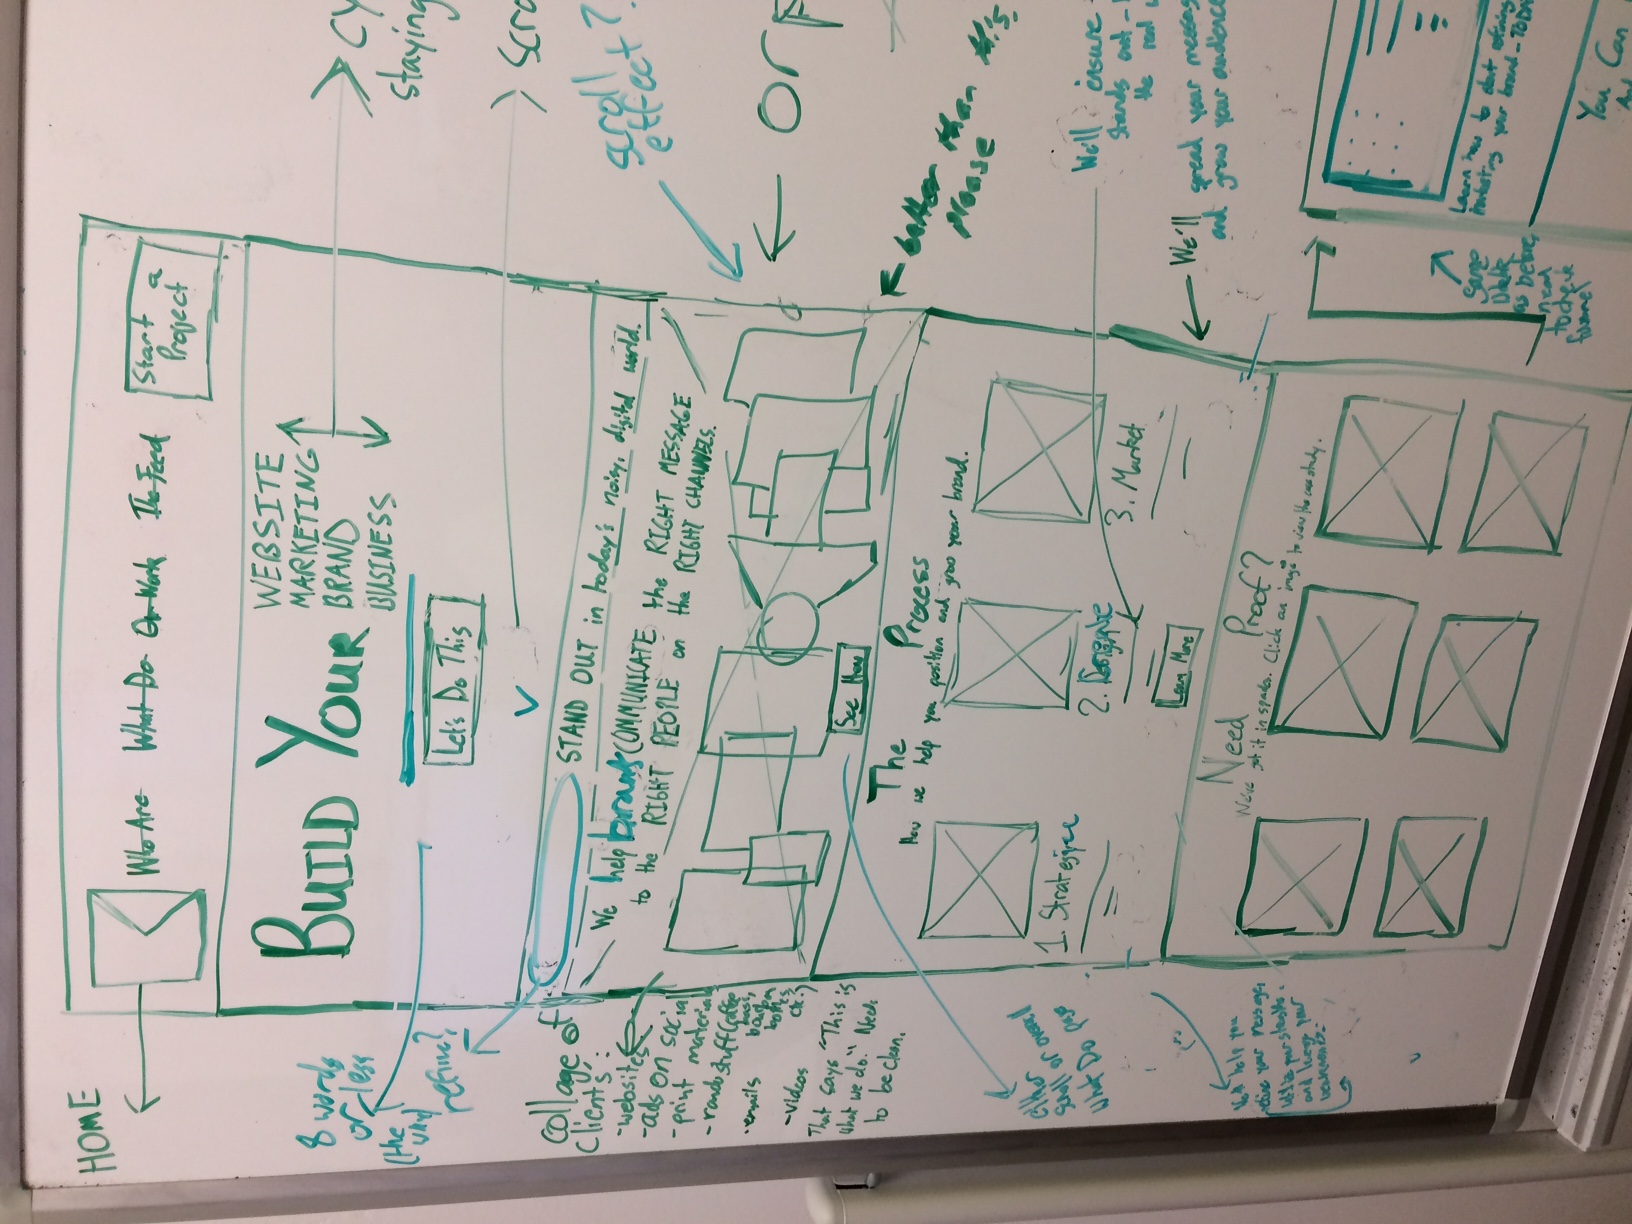 HOME
Who Are
What Do
Or Work
The Feed
Start a
Project
BUILD YOUR
WEBSITE
MARKETING
BRAND
BUSINESS
Let's Do This
8 words
or less
(the
why)
refine?
STAND OUT in today's noisy, digital world.
We help brands COMMUNICATE the RIGHT MESSAGE
to the RIGHT PEOPLE on the RIGHT CHANNELS.
See How
Collage of
Clients:
- websites
- ads on social
- print material
- emails
- videos
That says "This is
what we do." Need
to be clean.
scroll
effect?
or
staying
better than this
please
The Process
How we help you position and grow your brand.
1. Strategize
2. Designate
3. Market
Learn More
We'll ensure
stands out
We'll spread your message
and grow your audience
Need Proof?
We've got it in spades. Click an image to view the case study.
What Do pg
We'll help you
refine your message,
same
as before,
funnel
Learn how to start
marketing your brand - TODAY
You Can